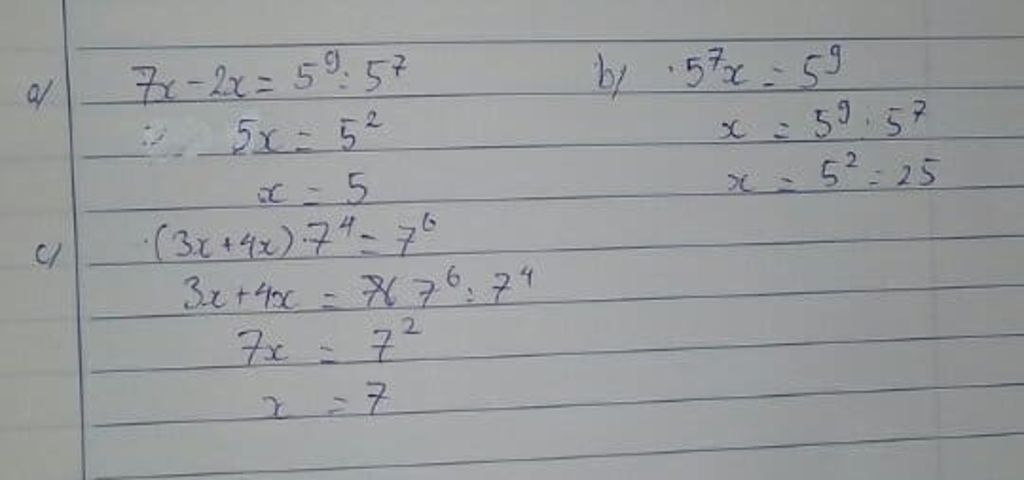 a/ 7x - 2x = 5⁹ : 5⁷
5x = 5²
x = 5
b/ 5⁷x = 5⁹
x = 5⁹ : 5⁷
x = 5² = 25
c/ (3x + 4x) . 7⁴ = 7⁶
3x + 4x = 7⁶ : 7⁴
7x = 7²
x = 7